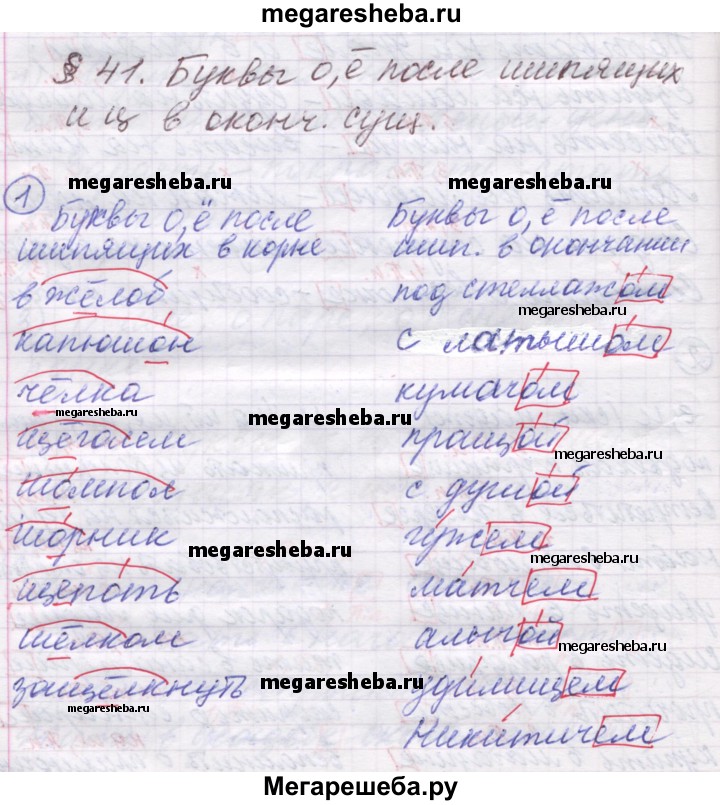 megaresheba.ru
§ 41. Буквы о, ё после шипящих
и ц в оконч. сущ.
megaresheba.ru megaresheba.ru
1
Буквы о, ё после
шипящих в корне
в жёлоб
капюшон
чёлка
megaresheba.ru
щёголем
шомпол
шорник
megaresheba.ru
щепоть
шёлком
защёлкнуть
megaresheba.ru
megaresheba.ru
Буквы о, ё после
шип. в окончании
под стеллажом
megaresheba.ru
с латышом
кумачом
megaresheba.ru
пращой
megaresheba.ru
с душой
гужем
megaresheba.ru
матчем
алычой
megaresheba.ru
удилищем
Никитичем
Мегарешеба.ру